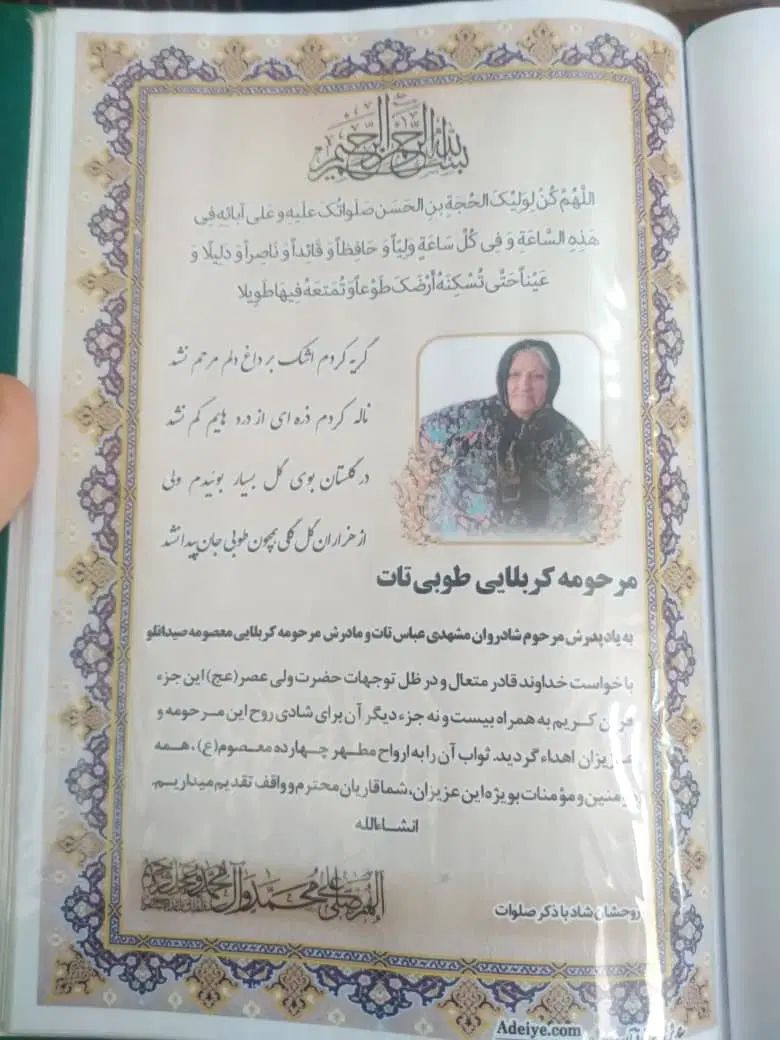 بسم الله الرحمن الرحیم
اللَّهُمَّ کُنْ لِوَلِیِّکَ الحُجَةِ بنِ الحَسَن صَلَواتُکَ عَلَیهِ وَ عَلی آبائِهِ فِی
هَذِهِ السَّاعَةِ وَ فِی کُلِّ سَاعَةٍ وَلِیّاً وَ حَافِظاً وَ قَائِداً وَ نَاصِراً وَ دَلِیلًا وَ
عَیْناً حَتَّی تُسْکِنَهُ أَرْضَکَ طَوْعاً وَ تُمَتعَهُ فِیهَا طَوِیلا
گریه کردم اشک بر داغ دلم مرحم نشد
ناله کردم ذره ای از درد هایم کم نشد
در گلستان بوی گل بسیار بوئیدم ولی
از هزاران گل گلی همچون طوبی جان پیدا نشد
مرحومه کربلایی طوبی تات
به یاد پدرش مرحوم شادروان مشهدی عباس تات و مادرش مرحومه کربلایی معصومه صیدانلو
با خواست خداوند قادر متعال و در ظل توجهات حضرت ولی عصر(عج) این جزء
قرآن کریم به همراه بیست و نه جزء دیگر آن برای شادی روح این مرحومه و
عزیزان اهداء گردید. ثواب آن را به ارواح مطهر چهارده معصوم(ع)، همه
مومنین و مؤمنات بویژه این عزیزان، شما قاریان محترم و واقف تقدیم میداریم.
انشاءالله
اللهم صل علی محمد و آل محمد و عجل فرجهم
روحشان شاد با ذکر صلوات
Adeiye.com